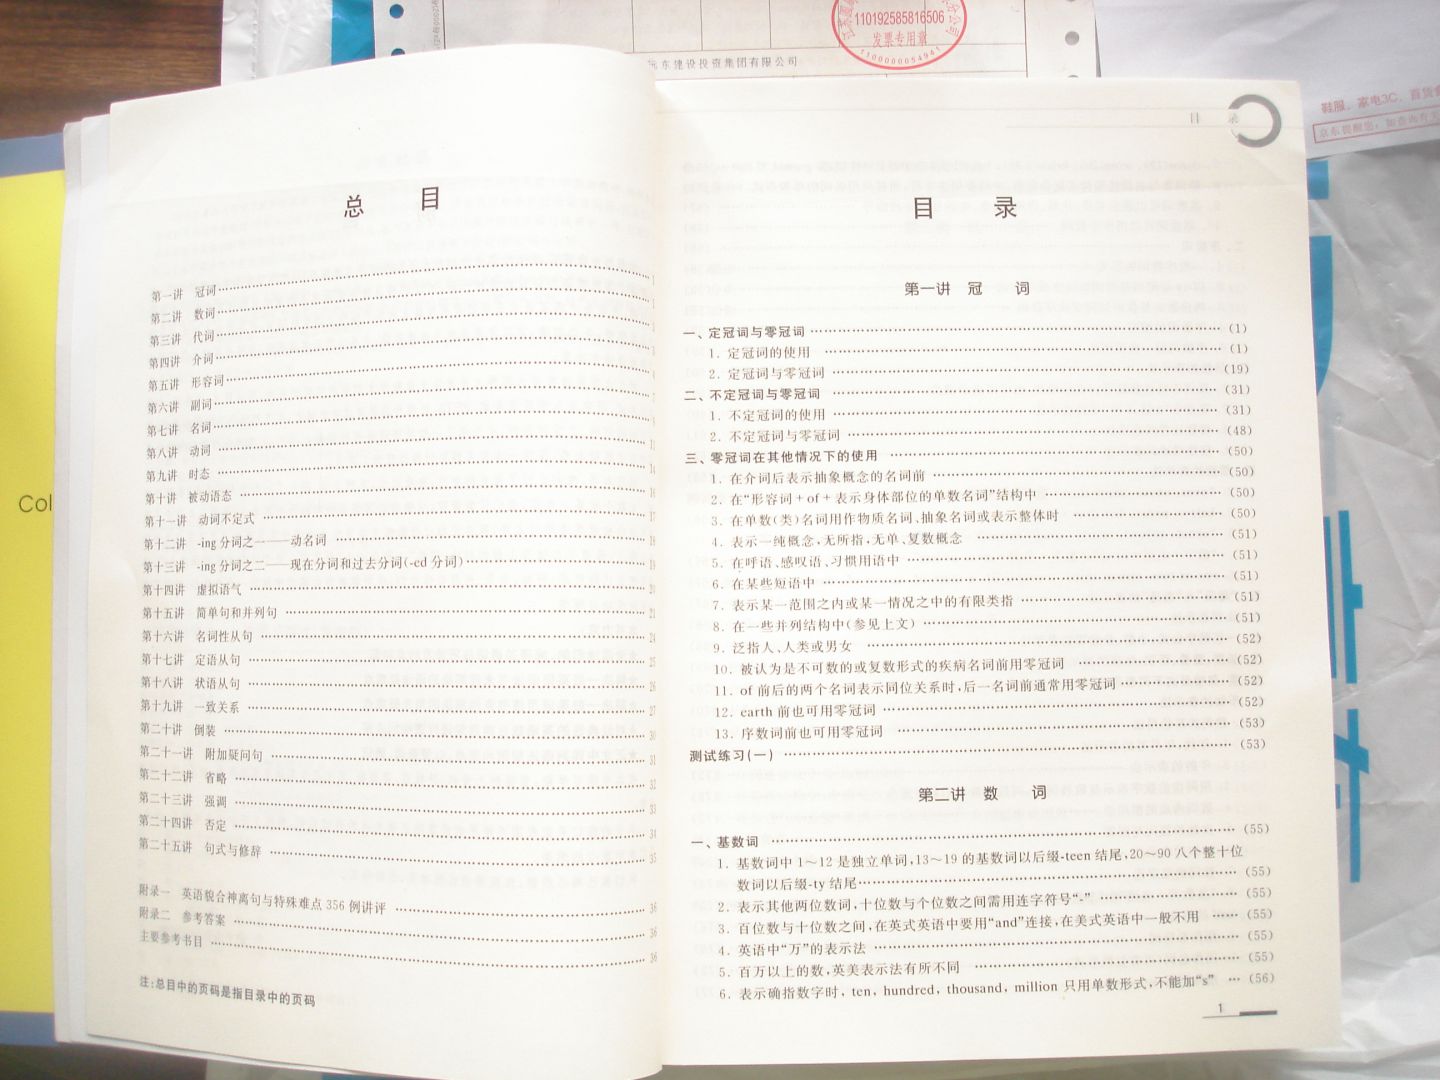 110192585816506
发票专用章
1100000054941
东建设投资集团有限公司
鞋服、家电3C、百货
Col
总 目
第一讲 冠词
第二讲 数词
第三讲 代词
第四讲 介词
第五讲 形容词
第六讲 副词
第七讲 名词
第八讲 动词 11
第九讲 时态 14
第十讲 被动语态 16
第十一讲 动词不定式 17
第十二讲 -ing 分词之一——动名词 18
第十三讲 -ing 分词之二——现在分词和过去分词(-ed 分词) 19
第十四讲 虚拟语气 20
第十五讲 简单句和并列句 21
第十六讲 名词性从句 24
第十七讲 定语从句 25
第十八讲 状语从句 26
第十九讲 一致关系 27
第二十讲 倒装 30
第二十一讲 附加疑问句 31
第二十二讲 省略 32
第二十三讲 强调 33
第二十四讲 否定 34
第二十五讲 句式与修辞 35
附录一 英语貌合神离句与特殊难点 356 例讲评 36
附录二 参考答案 36
主要参考书目 36
注:总目中的页码是指目录中的页码
目 录
目 录
第一讲 冠 词
一、定冠词与零冠词 (1)
1. 定冠词的使用 (1)
2. 定冠词与零冠词 (19)
二、不定冠词与零冠词 (31)
1. 不定冠词的使用 (31)
2. 不定冠词与零冠词 (48)
三、零冠词在其他情况下的使用 (50)
1. 在介词后表示抽象概念的名词前 (50)
2. 在“形容词+of+表示身体部位的单数名词”结构中 (50)
3. 在单数(类)名词用作物质名词、抽象名词或表示整体时 (50)
4. 表示一纯概念,无所指,无单、复数概念 (51)
5. 在呼语、感叹语、习惯用语中 (51)
6. 在某些短语中 (51)
7. 表示某一范围之内或某一情况之中的有限类指 (51)
8. 在一些并列结构中(参见上文) (51)
9. 泛指人、人类或男女 (52)
10. 被认为是不可数的或复数形式的疾病名词前用零冠词 (52)
11. of 前后的两个名词表示同位关系时,后一名词前通常用零冠词 (52)
12. earth 前也可用零冠词 (52)
13. 序数词前也可用零冠词 (53)
测试练习(一) (53)
第二讲 数 词
一、基数词 (55)
1. 基数词中 1～12 是独立单词,13～19 的基数词以后缀-teen 结尾,20～90 八个整十位
数词以后缀-ty 结尾 (55)
2. 表示其他两位数词,十位数与个位数之间需用连字符号“-” (55)
3. 百位数与十位数之间,在英式英语中要用“and”连接,在美式英语中一般不用 (55)
4. 英语中“万”的表示法 (55)
5. 百万以上的数,英美表示法有所不同 (55)
6. 表示确指数字时, ten, hundred, thousand, million 只用单数形式,不能加“s” (56)
1